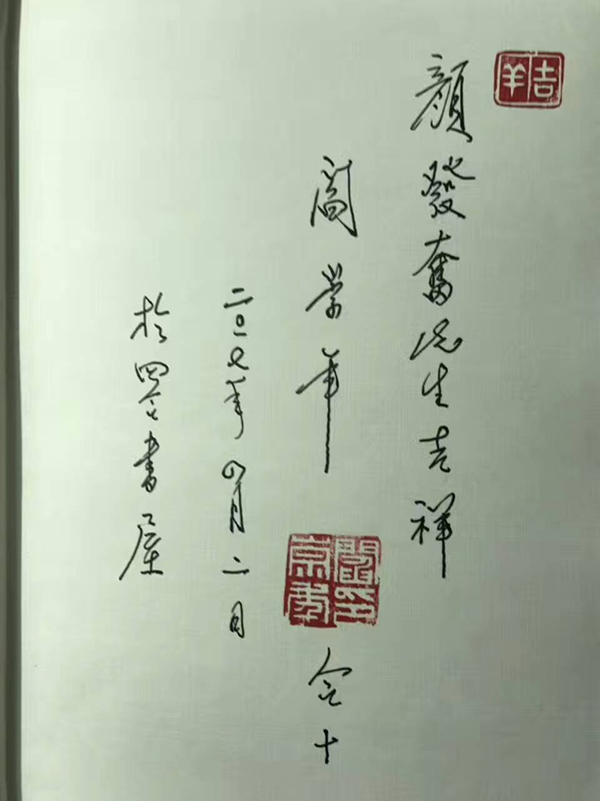 吉羊
顏發奮先生吉祥
閻崇年
閻崇年印
合十
二〇一七年四月二日
於四合書屋